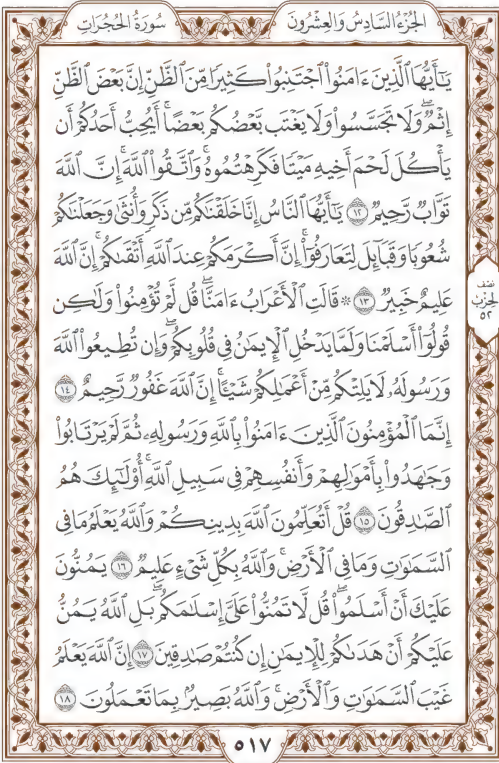 الجُزْءُ السَّادِسُ وَالعِشْرُونَ
سُورَةُ الحُجُرَاتِ
يَٰٓأَيُّهَا ٱلَّذِينَ ءَامَنُوا۟ ٱجْتَنِبُوا۟ كَثِيرًا مِّنَ ٱلظَّنِّ إِنَّ بَعْضَ ٱلظَّنِّ
إِثْمٌۖ وَلَا تَجَسَّسُوا۟ وَلَا يَغْتَب بَّعْضُكُم بَعْضًاۚ أَيُحِبُّ أَحَدُكُمْ أَن
يَأْكُلَ لَحْمَ أَخِيهِ مَيْتًا فَكَرِهْتُمُوهُۚ وَٱتَّقُوا۟ ٱللَّهَۚ إِنَّ ٱللَّهَ
تَوَّابٌ رَّحِيمٌ ١٢ يَٰٓأَيُّهَا ٱلنَّاسُ إِنَّا خَلَقْنَٰكُم مِّن ذَكَرٍ وَأُنثَىٰ وَجَعَلْنَٰكُمْ
شُعُوبًا وَقَبَآئِلَ لِتَعَارَفُوٓا۟ۚ إِنَّ أَكْرَمَكُمْ عِندَ ٱللَّهِ أَتْقَىٰكُمْۚ إِنَّ ٱللَّهَ
عَلِيمٌ خَبِيرٌ ١٣ ۞ قَالَتِ ٱلْأَعْرَابُ ءَامَنَّاۖ قُل لَّمْ تُؤْمِنُوا۟ وَلَٰكِن
قُولُوٓا۟ أَسْلَمْنَا وَلَمَّا يَدْخُلِ ٱلْإِيمَٰنُ فِى قُلُوبِكُمْۖ وَإِن تُطِيعُوا۟ ٱللَّهَ
وَرَسُولَهُۥ لَا يَلِتْكُم مِّنْ أَعْمَٰلِكُمْ شَيْـًٔاۚ إِنَّ ٱللَّهَ غَفُورٌ رَّحِيمٌ ١٤
إِنَّمَا ٱلْمُؤْمِنُونَ ٱلَّذِينَ ءَامَنُوا۟ بِٱللَّهِ وَرَسُولِهِۦ ثُمَّ لَمْ يَرْتَابُوا۟
وَجَٰهَدُوا۟ بِأَمْوَٰلِهِمْ وَأَنفُسِهِمْ فِى سَبِيلِ ٱللَّهِۚ أُو۟لَٰٓئِكَ هُمُ
ٱلصَّٰدِقُونَ ١٥ قُلْ أَتُعَلِّمُونَ ٱللَّهَ بِدِينِكُمْ وَٱللَّهُ يَعْلَمُ مَا فِى
ٱلسَّمَٰوَٰتِ وَمَا فِى ٱلْأَرْضِۚ وَٱللَّهُ بِكُلِّ شَىْءٍ عَلِيمٌ ١٦ يَمُنُّونَ
عَلَيْكَ أَنْ أَسْلَمُوا۟ۖ قُل لَّا تَمُنُّوا۟ عَلَىَّ إِسْلَٰمَكُمۖ بَلِ ٱللَّهُ يَمُنُّ
عَلَيْكُمْ أَنْ هَدَىٰكُمْ لِلْإِيمَٰنِ إِن كُنتُمْ صَٰدِقِينَ ١٧ إِنَّ ٱللَّهَ يَعْلَمُ
غَيْبَ ٱلسَّمَٰوَٰتِ وَٱلْأَرْضِۚ وَٱللَّهُ بَصِيرٌۢ بِمَا تَعْمَلُونَ ١٨
نصف
الحزب
٥٢
٥١٧